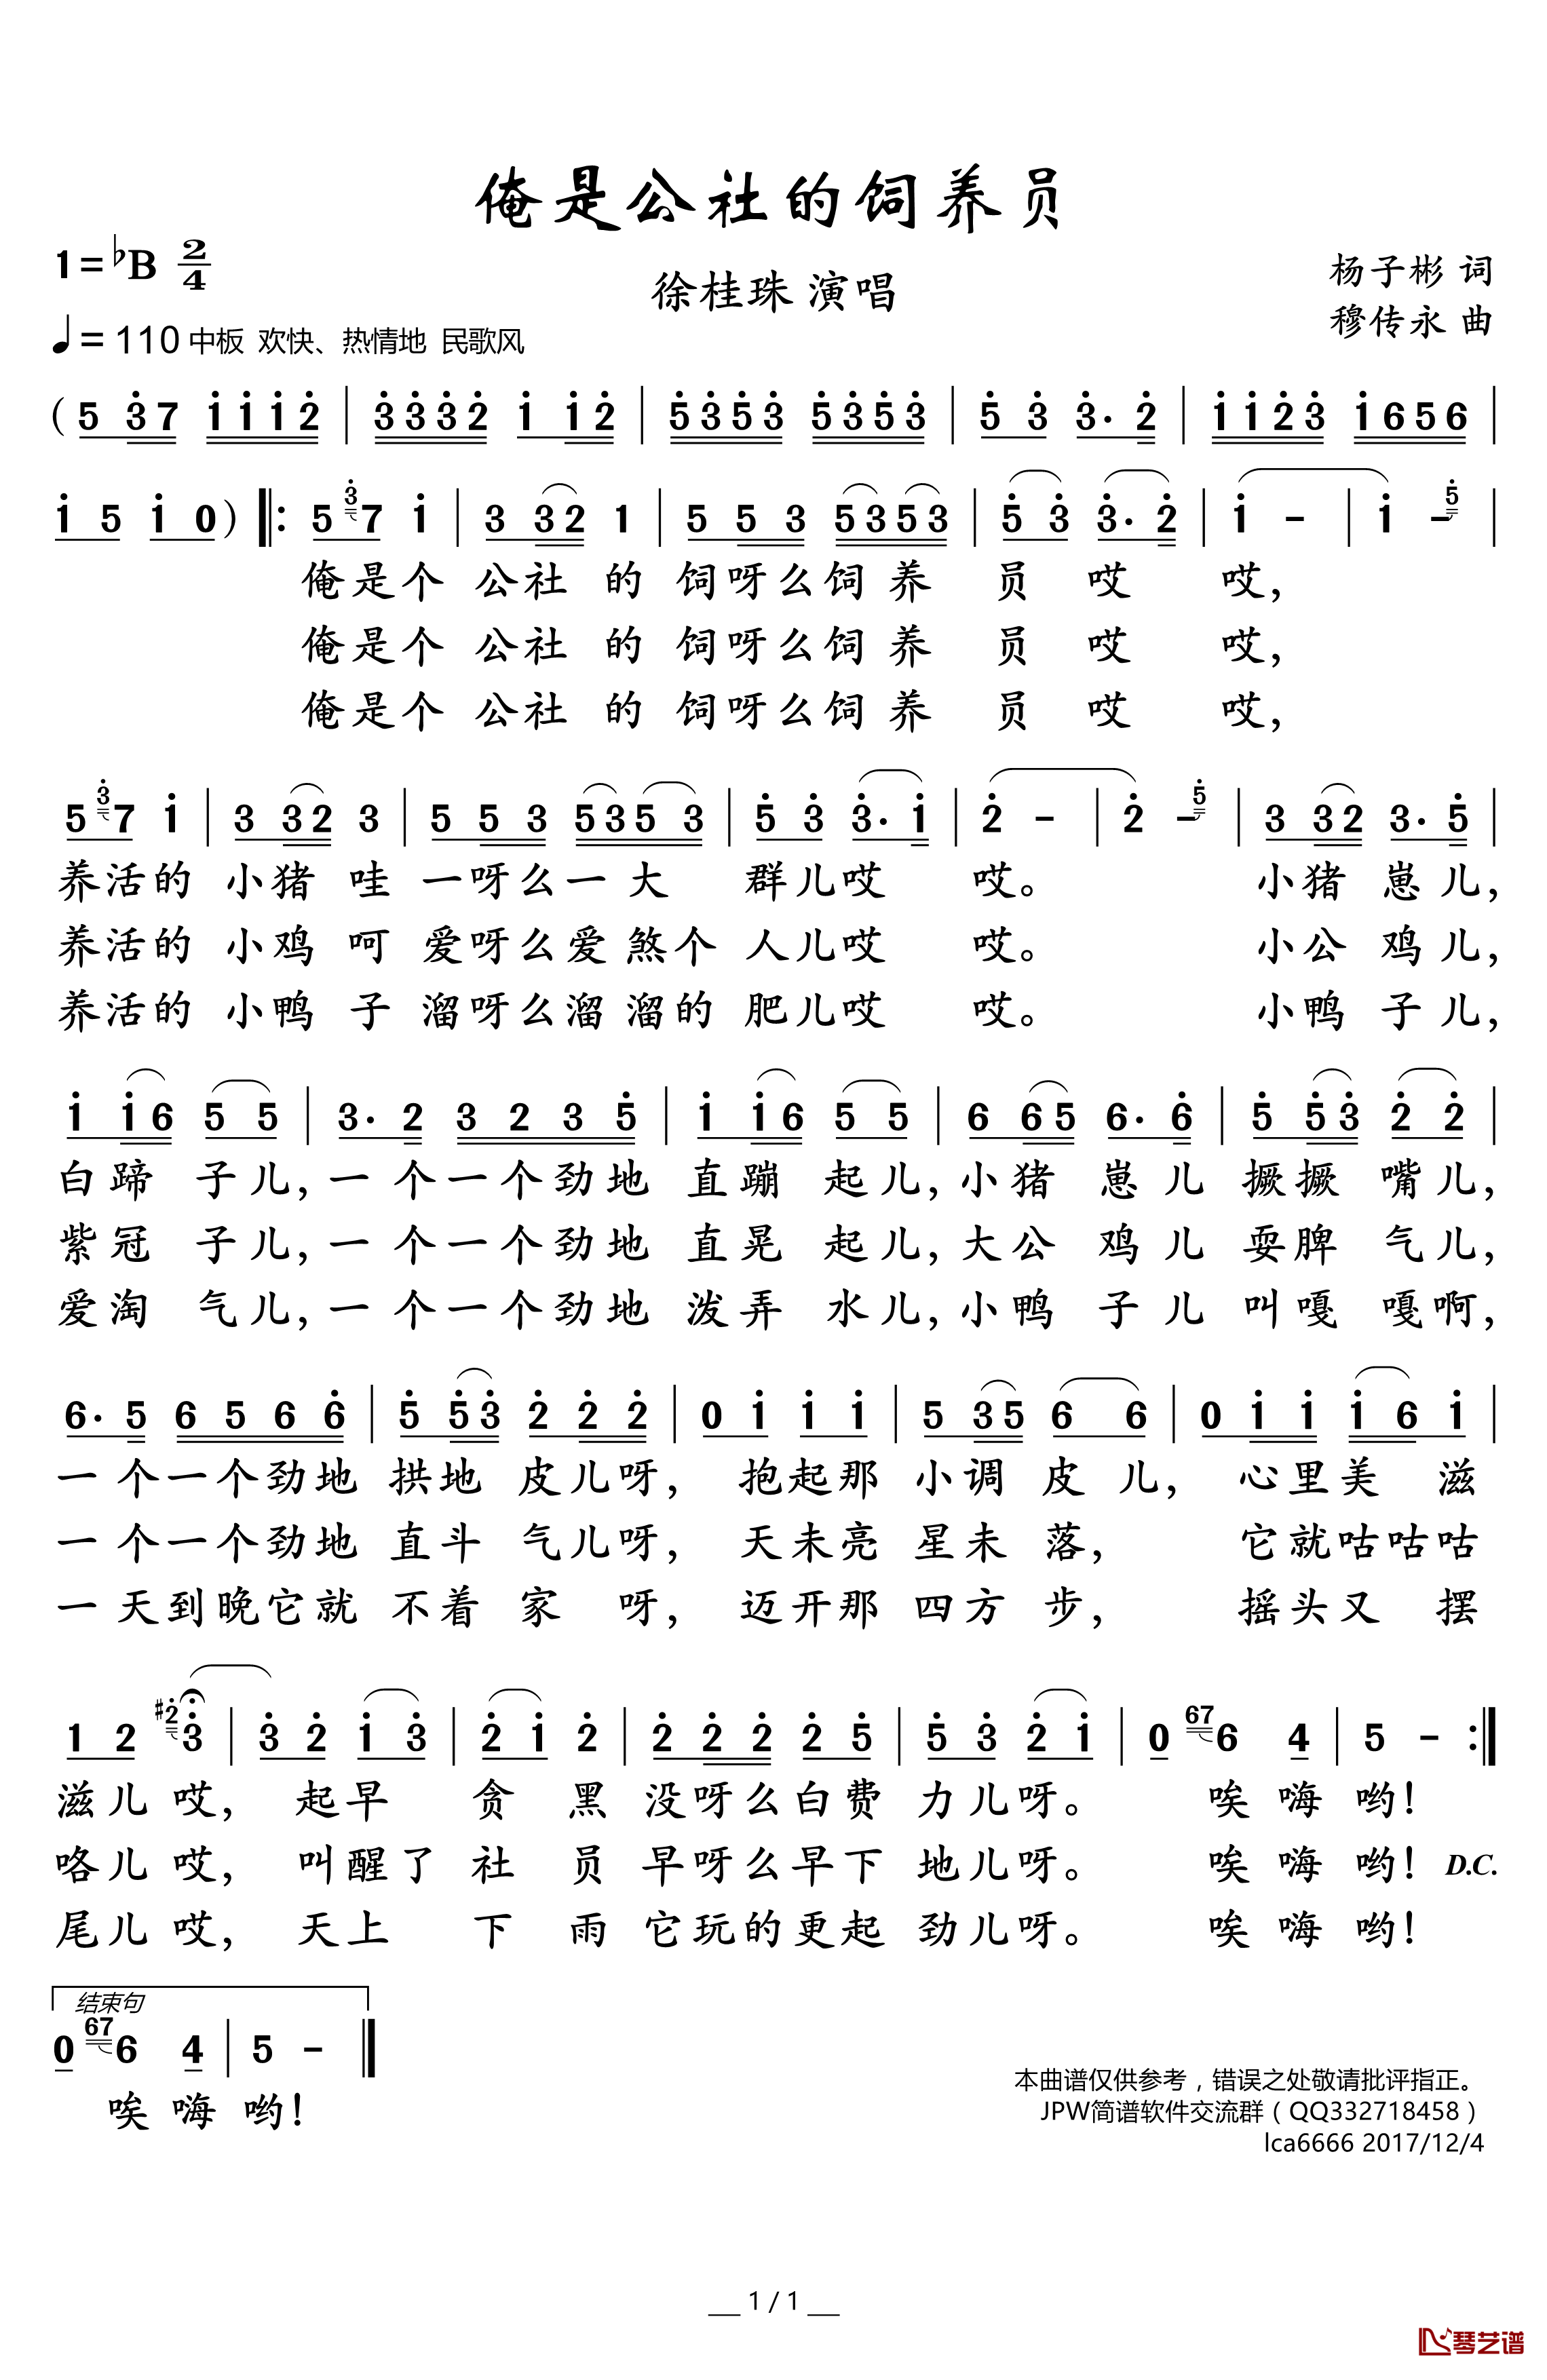 俺是公社的饲养员
1=♭B 2/4
徐桂珠 演唱
杨子彬 词
穆传永 曲
♩= 110 中板 欢快、热情地 民歌风
( 5 3̇ 7 1̇ 1̇ 1̇ 2̇ | 3̇ 3̇ 3̇ 2̇ 1̇ 1̇ 2̇ | 5̇ 3̇ 5̇ 3̇ 5̇ 3̇ 5̇ 3̇ | 5̇ 3̇ 3̇· 2̇ | 1̇ 1̇ 2̇ 3̇ 1̇ 6 5 6 |
1̇ 5 1̇ 0 ) ‖: 5 3̇ 7 1̇ | 3 3 2 1 | 5 5 3 5 3 5 3 | 5̇ 3̇ 3̇· 2̇ | 1̇ - | 1̇ - 5̇ |
俺是个 公社 的 饲呀么饲 养 员 哎 哎，
俺是个 公社 的 饲呀么饲 养 员 哎 哎，
俺是个 公社 的 饲呀么饲 养 员 哎 哎，
5 3̇ 7 1̇ | 3 3 2 3 | 5 5 3 5 3 5 3 | 5̇ 3̇ 3̇· 1̇ | 2̇ - | 2̇ - 5̇ | 3 3 2 3· 5̇ |
养活的 小猪 哇 一呀么一 大 群儿哎 哎。 小猪 崽儿，
养活的 小鸡 呵 爱呀么爱 煞个 人儿哎 哎。 小公 鸡儿，
养活的 小鸭 子 溜呀么溜 溜的 肥儿哎 哎。 小鸭 子儿，
1̇ 1̇ 6 5 5 | 3· 2 3 2 3 5̇ | 1̇ 1̇ 6 5 5 | 6 6 5 6· 6̇ | 5̇ 5̇ 3̇ 2̇ 2̇ |
白蹄 子儿，一 个一个劲地 直蹦 起儿，小猪 崽儿 撅撅 嘴儿，
紫冠 子儿，一 个一个劲地 直晃 起儿，大公 鸡儿 耍脾 气儿，
爱淘 气儿，一 个一个劲地 泼弄 水儿，小鸭 子儿 叫嘎 嘎啊，
6· 5 6 5 6 6̇ | 5̇ 5̇ 3̇ 2̇ 2̇ 2̇ | 0 1̇ 1̇ 1̇ | 5 3 5 6 6 | 0 1̇ 1̇ 1̇ 6 1̇ |
一 个一个劲地 拱地 皮儿呀， 抱起那 小调 皮儿， 心里美 滋
一 个一个劲地 直斗 气儿呀， 天未亮 星未 落， 它就咕咕咕
一 天到晚它就 不着 家 呀， 迈开那 四方 步， 摇头又 摆
1 2 ♯2̇ 3̇ | 3̇ 2̇ 1̇ 3̇ | 2̇ 1̇ 2̇ | 2̇ 2̇ 2̇ 2̇ 5̇ | 5̇ 3̇ 2̇ 1̇ | 0 67 6 4 | 5 - :‖
滋儿 哎， 起早 贪 黑 没呀么白费 力儿呀。 唉 嗨 哟！
咯儿 哎， 叫醒了 社 员 早呀么早下 地儿呀。 唉 嗨 哟！ D.C.
尾儿 哎， 天上 下 雨 它玩的更起 劲儿呀。 唉 嗨 哟！
结束句
0 67 6 4 | 5 - ‖
唉 嗨 哟！
本曲谱仅供参考，错误之处敬请批评指正。
JPW简谱软件交流群（QQ332718458）
lca6666 2017/12/4
1 / 1
琴艺谱